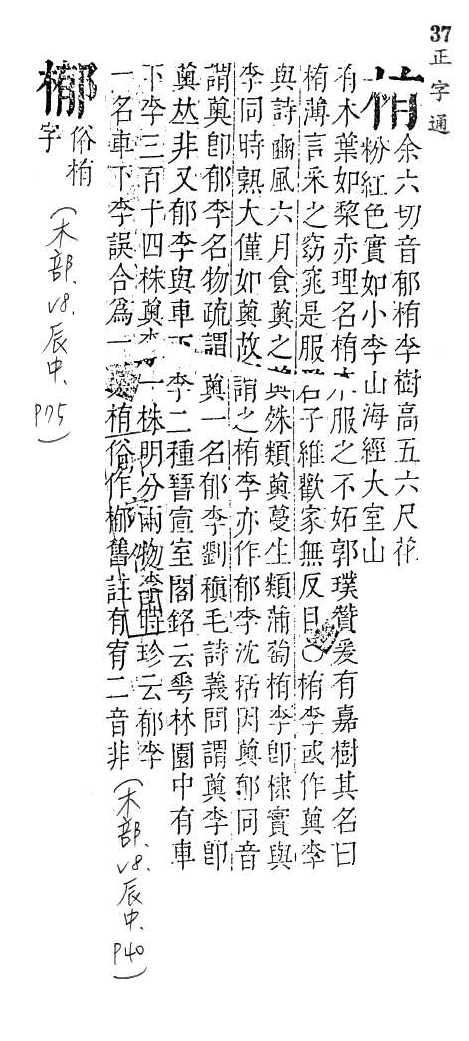 37 正字通
栯 余六切音郁栯李樹高五六尺花
粉紅色實如小李山海經大室山
有木葉如棃赤理名栯木服之不妬郭璞贊爰有嘉樹其名曰
栯薄言采之窈窕是服君子維歡家無反目○栯李或作薁李
與詩豳風六月食薁之薁殊類薁蔓生類蒲萄栯李卽棣實與
李同時熟大僅如薁故謂之栯李亦作郁李沈括因薁郁同音
謂薁卽郁李名物疏謂薁一名郁李劉稹毛詩義問謂薁李卽
薁𠀤非又郁李與車下李二種晉宣室閣銘云華林園中有車
下李三百十四株薁李一株明分兩物李時珍云郁李
一名車下李誤合爲一 栯俗作𣙗舊註有宥二音非
(木部.v8.辰中.p40)
𣙗 俗栯
字
(木部.v8.辰中.p75)